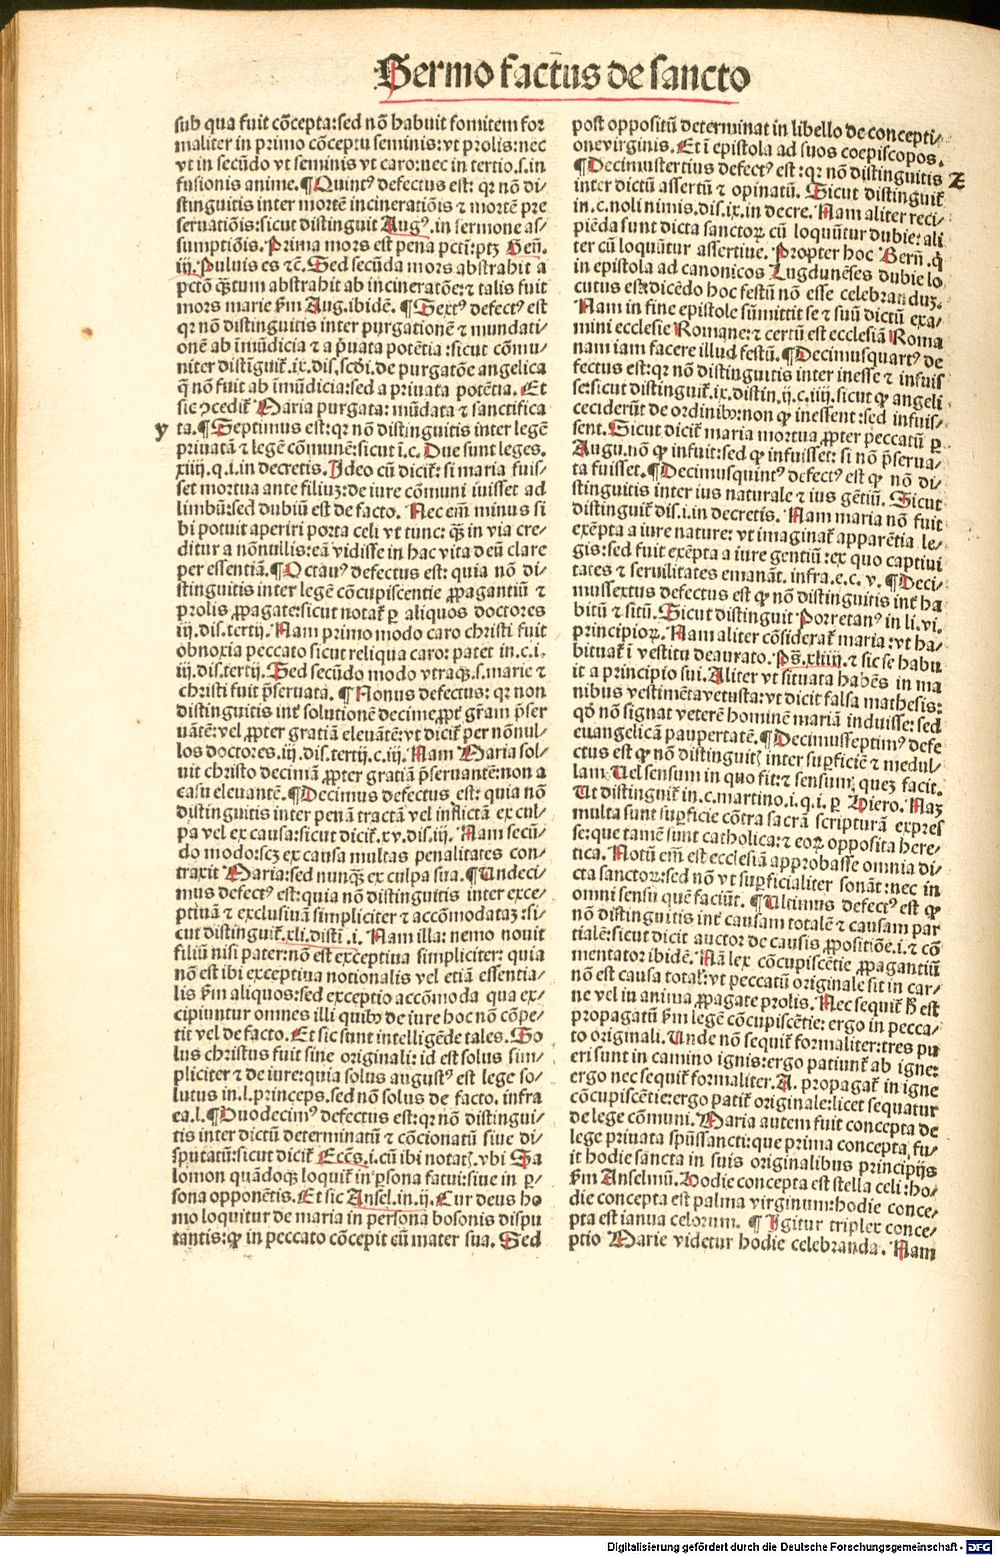 Sermo factus de sancto
sub qua fuit cõcepta:sed nõ habuit fomitem for
maliter in primo cõceptu seminis:vt prolis:nec
vt in secũdo vt seminis vt caro:nec in tertio.s.in
fusionis anime.¶Quintꝰ defectus est: qꝛ nõ di⸗
stinguitis inter mortẽ incineratiõis ⁊ mortẽ pre
seruatiõis:sicut distinguit Augꝰ.in sermone as⸗
sumptiõis. Prima mors est pena pctĩ:ptꝫ Geñ.
iij. Puluis es ⁊c̃. Sed secũda mors abstrahit a
pctõ q̃tum abstrahit ab incineratõe:⁊ talis fuit
mors marie ẜm Aug.ibidẽ. ¶Sextꝰ defectꝰ est
qꝛ nõ distinguitis inter purgationẽ ⁊ mundati⸗
onẽ ab ĩmũdicia ⁊ a p̃uata potẽtia:sicut cõmu⸗
niter distĩguit̃.ix.dis.scd̃i.de purgatõe angelica
q̃ nõ fuit ab ĩmũdicia:sed a priuata potẽtia. Et
sic ꝯcedit̃ Maria purgata: mũdata ⁊ sanctifica
y
ta.¶Septimus est:qꝛ nõ distinguitis inter legẽ
priuatã ⁊ legẽ cõmunẽ:sicut ĩ.c. Due sunt leges.
xiiij.q.i.in decretis. Ideo cũ dicit̃: si maria fuis⸗
set mortua ante filiuꝫ:de iure cõmuni iuisset ad
limbũ:sed dubiũ est de facto. Nec em̃ minus si
bi potuit aperiri porta celi vt tunc: q̃ in via cre⸗
ditur a nõnullis:eã vidisse in hac vita deũ clare
per essentiã.¶Octauꝰ defectus est: quia nõ di⸗
stinguitis inter legẽ cõcupiscentie ꝓpagantiũ ⁊
prolis ꝓpagate:sicut notat̃ ꝑ aliquos doctores
iij.dis.tertij. Nam primo modo caro christi fuit
obnoxia peccato sicut reliqua caro: patet in.c.i.
iij.dis.tertij. Sed secũdo modo vtraqꝫ.s.marie ⁊
christi fuit p̃seruata. ¶Nonus defectus: qꝛ non
distinguitis int̃ solutionẽ decime ꝓpt̃ gr̃am p̃ser
uãtẽ: vel ꝓpter gratiã eleuãtẽ:vt dicit̃ per nõnul⸗
los doctores.iij.dis.tertij.c.iij. Nam Maria sol⸗
uit christo decimã ꝓpter gratiã p̃seruantẽ:non a
casu eleuantẽ.¶Decimus defectus est: quia nõ
distinguitis inter penã tractã vel inflictã ex cul⸗
pa vel ex causa:sicut dicit̃.xv.dis.iij. Nam secũ⸗
do modo:scꝫ ex causa multas penalitates con⸗
traxit Maria:sed nunq̃ ex culpa sua.¶Undeci⸗
mus defectꝰ est:quia nõ distinguitis inter exce⸗
ptiuã ⁊ exclusiuã simpliciter ⁊ accõmodataꝫ:si⸗
cut distinguit̃.xli.disti.i. Nam illa: nemo nouit
filiũ nisi pater:nõ est exceptiua simpliciter: quia
nõ est ibi exceptiua notionalis vel etiã essentia⸗
lis ẜm aliquos:sed exceptio accõmoda qua ex⸗
cipiuntur omnes illi quibꝰ de iure hoc nõ cõpe⸗
tit vel de facto. Et sic sunt intelligẽde tales. So
lus christus fuit sine originali: id est solus sim⸗
pliciter ⁊ de iure:quia solus augustꝰ est lege so⸗
lutus in.l.princeps.sed nõ solus de facto. infra
ea.l.¶Duodecimꝰ defectus est:qꝛ nõ distingui⸗
tis inter dictũ determinatũ ⁊ cõcionatũ siue di⸗
sputatũ:sicut dicit̃ Ecc̃s.i.cũ ibi notat̃.vbi Sa
lomon quãdoqꝫ loquit̃ in ꝑsona fatui:siue in ꝑ⸗
sona opponẽtis. Et sic Ansel.in.ij. Cur deus ho
mo loquitur de maria in personã bosonis dispu
tantis:ꝙ in peccato cõcepit eũ mater sua. Sed
post oppositũ determinat in libello de concepti⸗
one virginis. Et ĩ epistola ad suos coepiscopos.
¶Decimustertius defectꝰ est:qꝛ nõ distinguitis
z
inter dictũ assertũ ⁊ opinatũ. Sicut distinguit̃
in.c.noli nimis.dis.ix.in decre. Nam aliter reci⸗
piẽda sunt dicta sanctoꝝ cũ loquũtur dubie: ali
ter cũ loquũtur assertiue. Propter hoc Berñ.q̃
in epistola ad canonicos Lugdunẽses dubie lo
cutus est dicẽdo hoc festũ nõ esse celebranduꝫ.
Nam in fine epistole sũmittit se ⁊ suũ dictũ exa⸗
mini ecclesie Romane:⁊ certũ est ecclesiã Roma
nam iam facere illud festũ.¶Decimusquartꝰ de
fectus est:qꝛ nõ distinguitis inter inesse ⁊ infuis
se:sicut distinguit̃.ix.distin.ij.c.iiij.sicut ꝙ angeli
ceciderũt de ordinibꝰ:non ꝙ inessent:sed infuis⸗
sent. Sicut dicit̃ maria mortua ꝓpter peccatũ ꝑ
Augu.nõ ꝙ infuit:sed ꝙ infuisset: si nõ p̃serua⸗
ta fuisset.¶Decimusquintꝰ defectꝰ est ꝙ nõ di⸗
stinguitis inter ius naturale ⁊ ius gẽtiũ. Sicut
distinguit̃ dis.i.in decretis. Nam maria nõ fuit
exẽpta a iure nature: vt imaginat̃ apparẽtia le⸗
gis:sed fuit exẽpta a iure gentiũ:ex quo captiui
tates ⁊ seruilitates emanãt. infra.e.c. v. ¶Deci⸗
mussextus defectus est ꝙ nõ distinguitis int̃ ha
bitũ ⁊ sitũ. Sicut distinguit Porretanꝰ in li.vi.
principioꝝ. Nam aliter cõsiderat̃ maria:vt ha⸗
bituat̃ ĩ vestitu deaurato. Ps̃.xliiij.⁊ sic se habu
it a principio sui. Aliter vt situata habẽs in ma
nibus vestimẽta vetusta:vt dicit falsa mathesis:
qd̃ nõ signat veterẽ hominẽ mariã induisse: sed
euangelicã paupertatẽ.¶Decimusseptimꝰ defe
ctus est ꝙ nõ distinguit̃ inter suꝑficiẽ ⁊ medul⸗
lam. Uel sensum in quo fit:⁊ sensum queꝫ facit.
Ut distinguit̃ in.c.martino.i.q.i.ꝑ Piero. Naꝫ
multa sunt suꝑficie cõtra sacrã scripturã expres
se:que tamẽ sunt catholica:⁊ eoꝝ opposita here⸗
tica. Notũ em̃ est ecclesiã approbasse omnia di⸗
cta sanctoꝝ:sed nõ vt suꝑficialiter sonãt:nec in
omni sensu quẽ faciũt. ¶Ultimus defectꝰ est ꝙ
nõ distinguitis int̃ causam totalẽ ⁊ causam par
tialẽ:sicut dicit auctor de causis ꝓpositiõe.i.⁊ cõ
mentator ibidẽ. Nã lex cõcupiscẽtie ꝓpagantiũ
nõ est causa total̃:vt peccatũ originale sit in car⸗
ne vel in anima ꝓpagate prolis. Nec sequit̃ h̃ est
propagatũ ẜm legẽ cõcupiscẽtie: ergo in pecca⸗
to originali. Unde nõ sequit̃ formaliter:tres pu
eri sunt in camino ignis:ergo patiunt̃ ab igne:
ergo nec sequit̃ formaliter. A. propagat̃ in igne
cõcupiscẽtie:ergo patit̃ originale:licet sequatur
de lege cõmuni. Maria autem fuit concepta de
lege priuata spũssancti:que prima concepta fu⸗
it hodie sancta in suis originalibus principijs
ẜm Anselmũ. Hodie concepta est stella celi:ho⸗
die concepta est palma virginum:hodie conce⸗
pta est ianua celorum. ¶Igitur triplex conce⸗
ptio Marie videtur hodie celebranda. Nam
Digitalisierung gefördert durch die Deutsche Forschungsgemeinschaft - DFG